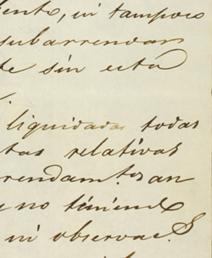 ento, ni tampoco
subarrendar
te sin esta
liquidadas todas
tas relativas
rendam.tos an
y no tiniend
ni observac.s